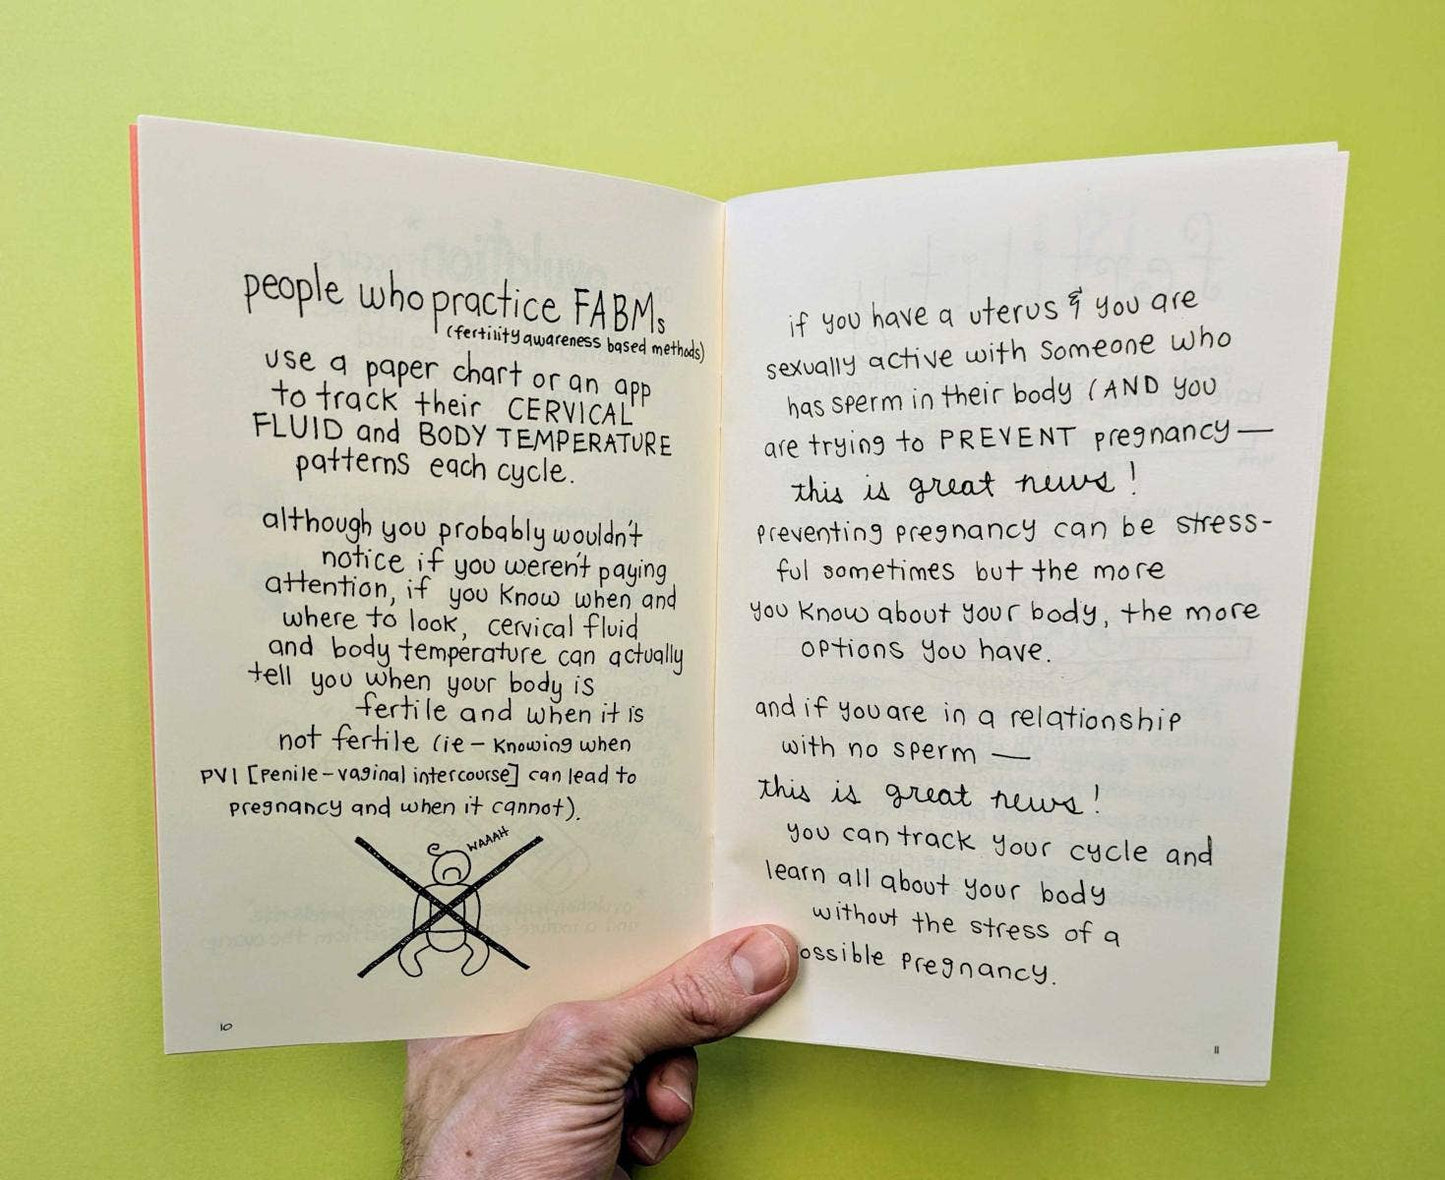 people who practice FABMs
(fertility awareness based methods)
use a paper chart or an app
to track their CERVICAL
FLUID and BODY TEMPERATURE
patterns each cycle.
although you probably wouldn't
notice if you weren't paying
attention, if you know when and
where to look, cervical fluid
and body temperature can actually
tell you when your body is
fertile and when it is
not fertile (ie - knowing when
PVI [penile-vaginal intercourse] can lead to
pregnancy and when it cannot).
WAAAH
10
if you have a uterus & you are
sexually active with someone who
has sperm in their body (AND you
are trying to PREVENT pregnancy —
this is great news!
preventing pregnancy can be stress-
ful sometimes but the more
you know about your body, the more
options you have.
and if you are in a relationship
with no sperm —
this is great news!
you can track your cycle and
learn all about your body
without the stress of a
ossible pregnancy.
11